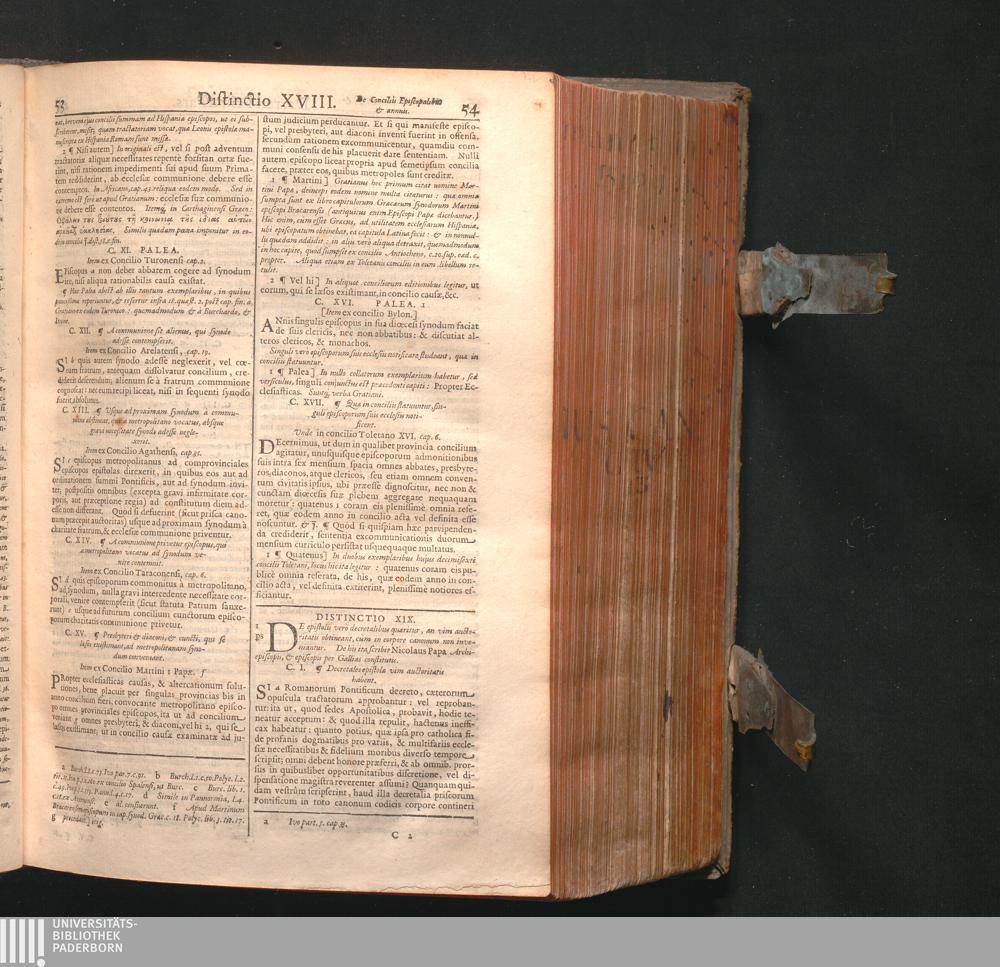 53
Distinctio XVIII.
De Conciliis Episcopalibus
& annuis.
54
est, brevem ejus concilii summam ad Hispaniæ episcopos, ut ei sub-
scriberent, misit; quam tractatoriam vocat, qua Leonis epistola ma-
nuscripta ex Hispania Romam sunt missa.
2 ¶ Nisi autem] In originali est, vel si post adventum
tractatoriæ aliquæ necessitates repente forsitan ortæ fue-
rint, nisi rationem impedimenti sui apud suum Prima-
tem reddiderint, ab ecclesiæ communione debere esse
contemptos. In Africano, cap. 43. reliqua eodem modo. Sed in
ecclesiæ suæ communio-
ne debere esse contentos. Item in Carthaginensi Græco:
C. XI. PALEA.
Item ex Concilio Turonensi cap. 1.
Episcopus a non debet abbatem cogere ad synodum
ire, nisi aliqua rationabilis causa existat.
¶ Hæc Palea abest ab illis tantum exemplaribus, in quibus
paucissimæ reperiuntur, & refertur infra 18. quæst. 2. post cap. fin. à
Gratiano ex eodem Turonico: quemadmodum & à Burchardo, &
Ivone.
C. XII. ¶ A communione sit alienus, qui synodo
adesse contempserit.
Item ex Concilio Arelatensi, cap. 19.
SI b quis autem synodo adesse neglexerit, vel cœ-
tum fratrum, antequam dissolvatur concilium, cre-
diderit deserendum, alienum se à fratrum communione
cognoscat: nec eum recipi liceat, nisi in sequenti synodo
fuerit absolutus.
C. XIII. ¶ Usque ad proximam synodum à commu-
nione abstineat, qui à metropolitano vocatus, absque
gravi necessitate synodo adesse negle-
xerit.
Item ex Concilio Agathensi, cap. 35.
SI c episcopus metropolitanus ad comprovinciales
episcopos epistolas direxerit, in quibus eos aut ad
ordinationem summi Pontificis, aut ad synodum invi-
tet; postpositis omnibus (excepta gravi infirmitate cor-
poris, aut præceptione regia) ad constitutum diem ad-
esse non differant. Quod si defuerint (sicut prisca cano-
num præcepit auctoritas) usque ad proximam synodum à
charitate fratrum, & ecclesiæ communione priventur.
C. XIV. ¶ A communione privetur episcopus, qui
à metropolitano vocatus ad synodum ve-
nire contemnit.
Item ex Concilio Taraconensi, cap. 6.
SI d quis episcoporum commonitus à metropolitano,
ad synodum, nulla gravi intercedente necessitate cor-
porali, venire contempserit (sicut statuta Patrum sanxe-
runt) e usque ad futurum concilium cunctorum episco-
porum charitatis communione privetur.
C. XV. ¶ Presbyteri & diaconi, & cuncti, qui se
læsos existimant, ad metropolitanam syno-
dum conveniant.
Item ex Concilio Martini 1 Papæ. f
PRopter ecclesiasticas causas, & altercationum solu-
tiones, bene placuit per singulas provincias bis in
anno concilium fieri, convocante metropolitano episco-
po omnes provinciales episcopos, ita ut ad concilium
veniant g omnes presbyteri, & diaconi, vel hi 2, qui se
læsos existimant; ut in concilio causæ examinatæ ad ju-
a Burch. l. 1. c. 73. Ivo par. 7. c. 91. b Burch. l. 1. c. 50. Polyc. l. 2.
d Simile in Pannormia, l. 4.
e al. constiterunt. f Apud Martinum
stum judicium perducantur. Et si qui manifeste episco-
pi, vel presbyteri, aut diaconi inventi fuerint in offensa,
secundum rationem excommunicentur, quamdiu com-
muni consensu de his placuerit dare sententiam. Nulli
autem episcopo liceat propria apud semetipsum concilia
facere, præter eos, quibus metropoles sunt creditæ.
1 ¶ Martini] Gratianus hoc primum citat nomine Mar-
tini Papæ, deinceps eodem nomine multa citaturus: quæ omnia
sumpta sunt ex libro capitulorum Græcarum synodorum Martini
episcopi Bracarensis (antiquitus enim Episcopi Papæ dicebantur.)
Hic enim, cum esset Græcus, ad utilitatem ecclesiarum Hispaniæ,
ubi episcopatum obtinebat, ea capitula Latina fecit: & in nonnul-
lis quædam addidit: in aliis verò aliqua detraxit, quemadmodum
in hoc capite, quod sumpsit ex concilio Antiocheno, c. 20. sup. ead. c.
propter. Aliqua etiam ex Toletanis conciliis in eum libellum re-
tulit.
2 ¶ Vel hi] In aliquot conciliorum editionibus legitur, ut
eorum, qui se læsos existimant, in concilio causæ, &c.
C. XVI. PALEA. 1
[Item ex concilio Bylon.]
ANnis singulis episcopus in sua diœcesi synodum faciat
de suis clericis, nec non abbatibus: & discutiat al-
teros clericos, & monachos.
Singuli verò episcoporum suis ecclesiis notificare studeant, quæ in
conciliis statuuntur.
1 ¶ Palea] In nullo collatorum exemplarium habetur, sed
versiculus, singuli conjunctus est præcedenti capiti: Propter Ec-
clesiasticas. Suntq; verba Gratiani.
C. XVII. ¶ Quæ in conciliis statuuntur, sin-
guli episcoporum suis ecclesiis noti-
ficent.
Unde in concilio Toletano XVI. cap. 6.
DEcernimus, ut dum in qualibet provincia concilium
agitatur, unusquisque episcoporum admonitionibus
suis intra sex mensium spacia omnes abbates, presbyte-
ros, diaconos, atque clericos, seu etiam omnem conven-
tum civitatis ipsius, ubi præesse dignoscitur, nec non &
cunctam diœcesis suæ plebem aggregare nequaquam
moretur: quatenus 1 coram eis plenissimè omnia refe-
ret, quæ eodem anno in concilio acta vel definita esse
noscuntur. & j. ¶ Quod si quispiam hæc parvipenden-
da crediderit, sententia excommunicationis duorum
mensium curriculo persistat usquequaque multatus.
1 ¶ Quatenus] In duobus exemplaribus hujus decimisexti
concilii Toletani, locus hic ita legitur: quatenus coram eis pu-
blicè omnia reserata, de his, quæ eodem anno in con-
cilio acta, vel definita extiterint, plenissime notiores ef-
ficiantur.
DISTINCTIO XIX.
1 ps
DE epistolis verò decretalibus quæritur, an vim aucto-
ritatis obtineant, cum in corpore canonum non inve-
niantur. De his ita scribit Nicolaus Papa Archi-
episcopis, & episcopis per Gallias constitutis.
C. I. ¶ Decretales epistolæ vim auctoritatis
habent.
SI a Romanorum Pontificum decreto, cæterorum
opuscula tractatorum approbantur: vel reproban-
tur: ita ut, quod sedes Apostolica, probavit, hodie te-
neatur acceptum: & quod illa repulit, hactenus ineffi-
cax habeatur: quanto potius, quæ ipsa pro catholica fi-
de profanis dogmatibus pro variis, & multifariis eccle-
siæ necessitatibus & fidelium moribus diverso tempore
scripsit; omni debent honore præferri, & ab omnib. pror-
sus in quibuslibet opportunitatibus discretione, vel di-
spensatione magistra reverenter assumi? Quanquam qui-
dam vestrûm scripserint, haud illa decretalia priscorum
Pontificum in toto canonum codicis corpore contineri
a Ivo part. 5. cap. 33.
C 2
UNIVERSITÄTS-
BIBLIOTHEK
PADERBORN